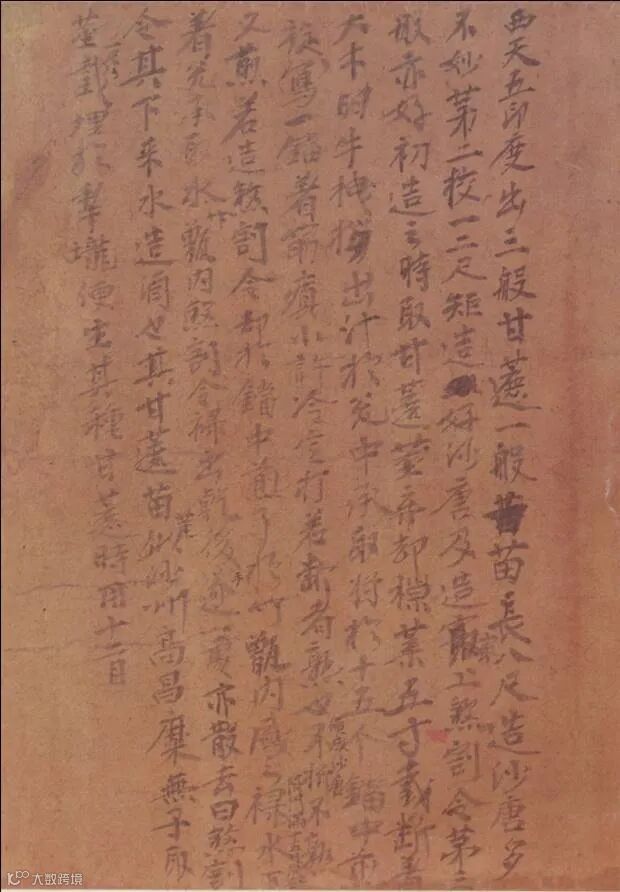 西天五印度出三般甘蔗一般苗長八尺造沙唐多
不妙苐二挍一二尺矩造好沙唐及造最上煞割令苐三
般亦好初造之時取甘蔗莖弃却梢葉五寸截斷着
大木臼牛拽拶出汁於瓮中承取將於十五个鐺中煎
旋寫一鐺着筯小許冷定打若斷者熟也便成沙唐不折不熟
又煎若造煞割令却於鐺中煎了於竹甑內盛之禄水下
着瓮承取水竹甑內煞割令禄出乾後手遂一處亦散去曰煞割
令其下來水造酒也其甘蔗苗莖似沙州高昌糜無子取
莖一尺截埋於犁壠便生其種甘蔗時用十二月
大数跨境